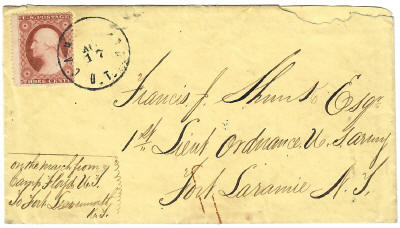 U.S. POSTAGE
THREE CENTS
CAM
AU
17
U.T.
Francis J. Shunk Esqr
1st Lieut Ordnance U.S. army
Fort Laramie N.T.
on the march from
Camp Floyd U.T.
to Fort Leavenworth
K.T.